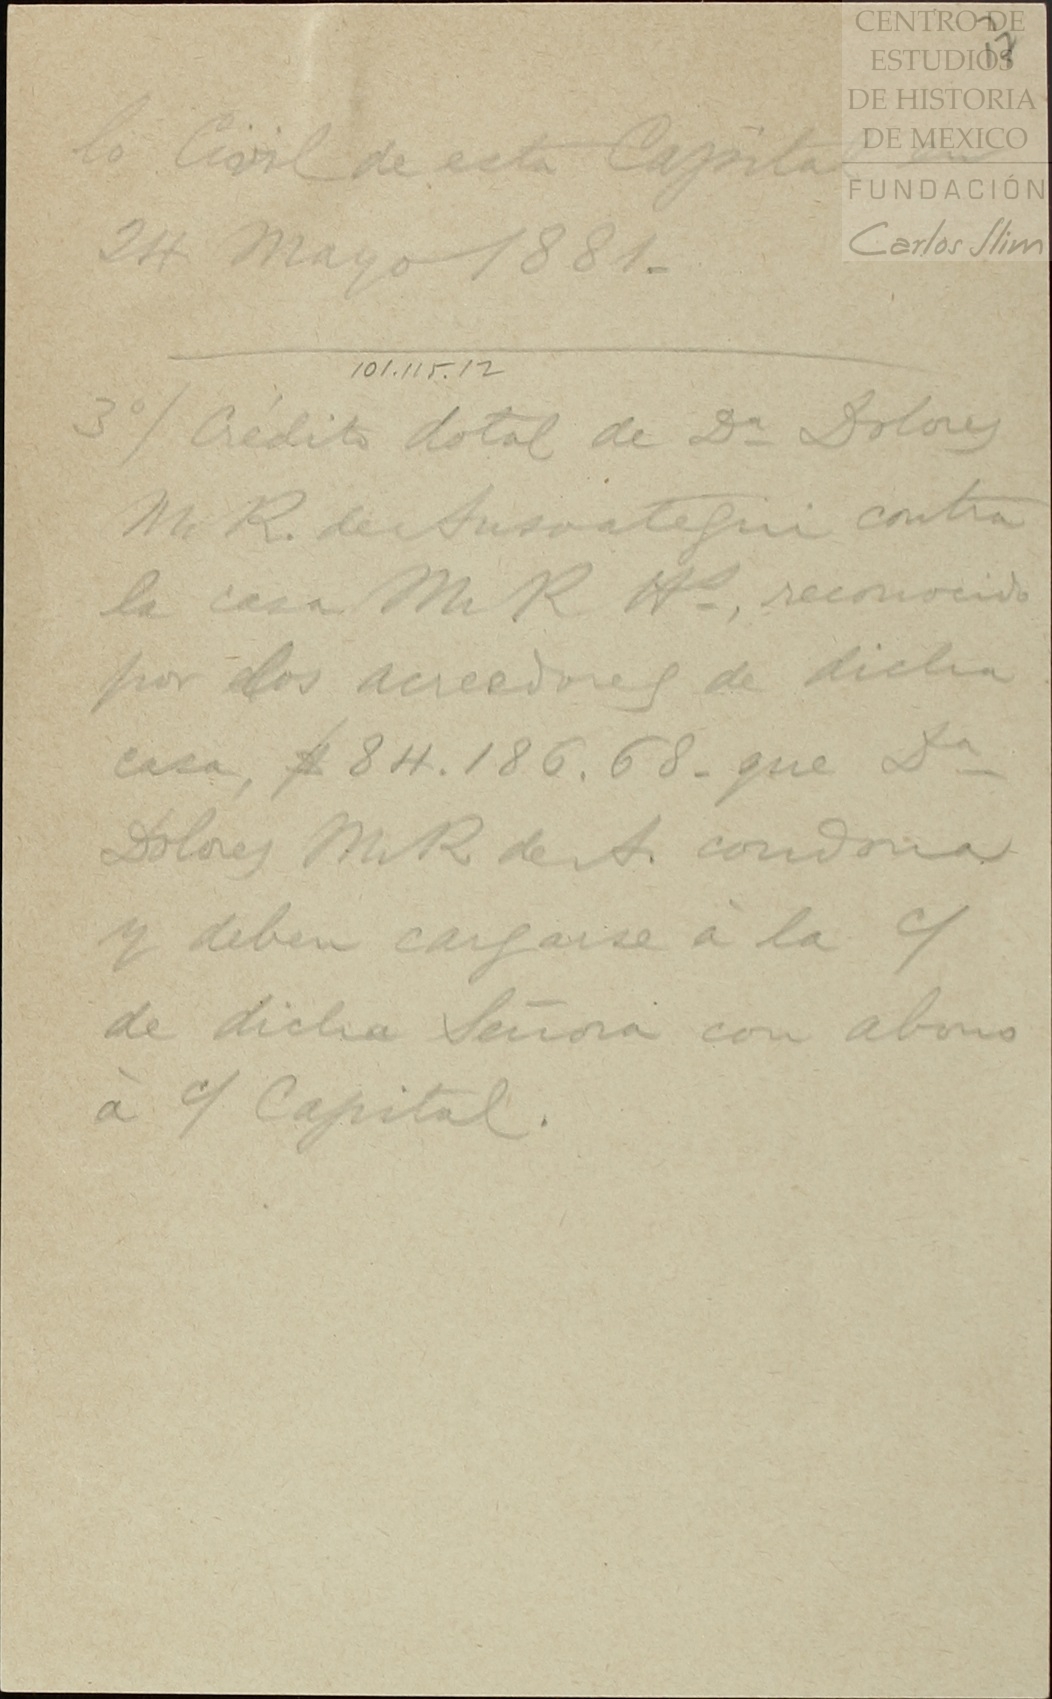 CENTRO DE
ESTUDIOS
DE HISTORIA
DE MEXICO
FUNDACIÓN
Carlos Slim
lo Civil de esta Capital en
24 Mayo 1881-
101.115.12
3º/ Crédito dotal de Dª Dolores
M R. de Ansoategui contra
la casa M R Hs, reconocido
por los acreedores de dicha
casa, $84.186.68- que Dª
Dolores M R de A. condona
y deben cargarse à la c/
de dicha Señora con abono
à c/ Capital.